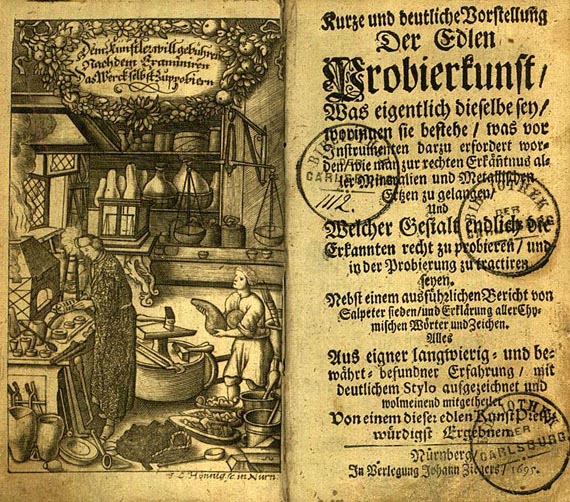 Dem Künstler will gebühren
Nach dem Examiniren
Das Werck selbst zu probiern
in Nurn
Kurze und deutliche Vorstellung
Der Edlen
Probierkunst/
Was eigentlich dieselbe sey/
worinnen sie bestehe/ was vor
Instrumenten darzu erfordert wor-
den/ wie man zur rechten Erkäntnus al-
ler Mineralien und Metallischen
Ertzen zu gelangen/
Und
Welcher Gestalt endlich die
Erkannten recht zu probieren/ und
in der Probierung zu tractiren
seyen.
Nebst einem ausführlichen Bericht von
Salpeter sieden/ und Erklärung aller Chy-
mischen Wörter und Zeichen.
Alles
Aus eigner langwierig- und be-
währt- befundner Erfahrung/ mit
deutlichem Stylo aufgezeichnet und
wolmeinend mitgetheilet
Von einem dieser edlen Kunst
würdigst Ergebnen.
Nürnberg/
In Verlegung Johann Ziegers/ 1695.
CARLS
1112.
BIBLIOTHEK
DER
BIBLIOTHEK
DER
CARLSBURG